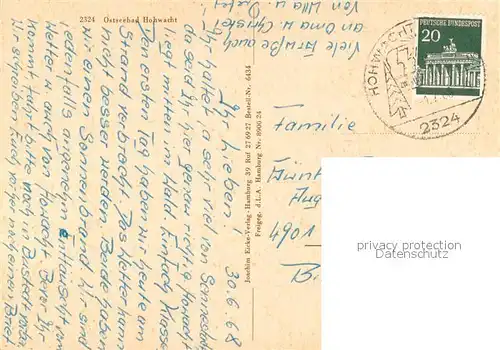 2324 Ostseebad Hohwacht
30.6.68
Ihr Lieben!
Ihr haltet ja sehr viel von Sonnenstich
da seid Ihr hier genau richtig. Hohwacht
liegt mitten im Wald. Einfach Klasse
Den ersten Tag haben wir heute am
Strand verbracht. Das Wetter kann
nicht besser werden. Beide haben
wir einen Sonnenbrand. Wir sind
jedenfalls angenehm enttäuscht, vom
Wetter u. auch von Hohwacht. Bevor Ihr
kommt fahrt bitte noch in Bustedt vorbei
Wir schreiben Euch vorher noch einen Brief
Viele Grüße auch
an Oma u. Christel
von Ulla u. Dieter
Joachim Eicke-Verlag - Hamburg 39 Ruf 27 69 27 Bestell-Nr. 6434
Freigeg. d. L.A. Hamburg Nr. 8906/24
DEUTSCHE BUNDESPOST
20
HOHWACHT
2324
Familie
4901
privacy protection
watermark